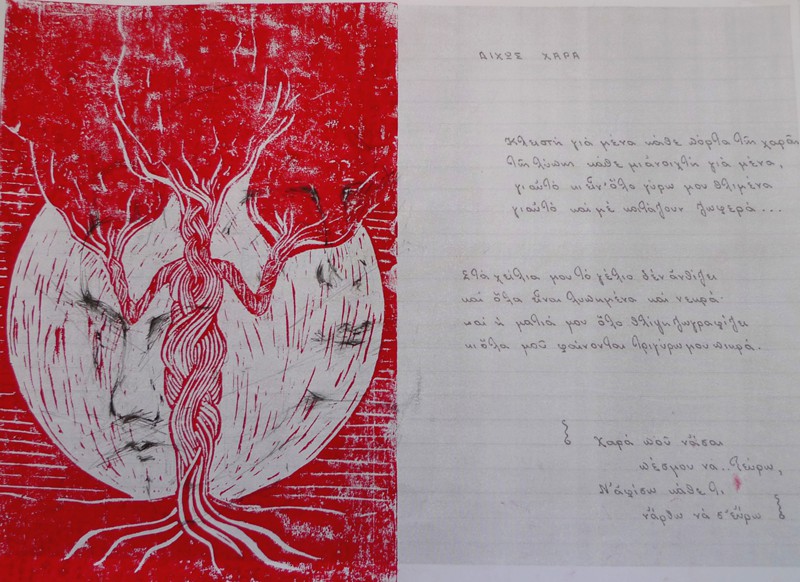 ΔΙΧΩΣ ΧΑΡΑ
Κλειστή γιά μένα κάθε πόρτα τῆς χαρᾶς
τῆς λύπης κάθε μιά ἀνοιχτή γιά μένα,
γι αὐτό κι εἶν' ὅλα γύρω μου θλιμένα
γιαὐτό καί μέ κοιτάζουν ζωφερά...
Στά χείλια μου τό γέλιο δέν ἀνθίζει
καί ὅλα εἶναι λυπημένα καί νεκρά·
καί ἡ ματιά μου ὅλο θλίψη ζωγραφίζει
κι ὅλα μοῦ φαίνονται τριγύρω μου πικρά.
Χαρά ποῦ νἆσαι
πέσμου να..τεύρω,
Ν' ἀφίσω κάθε τι
νἄρθω νά σ' εὕρω